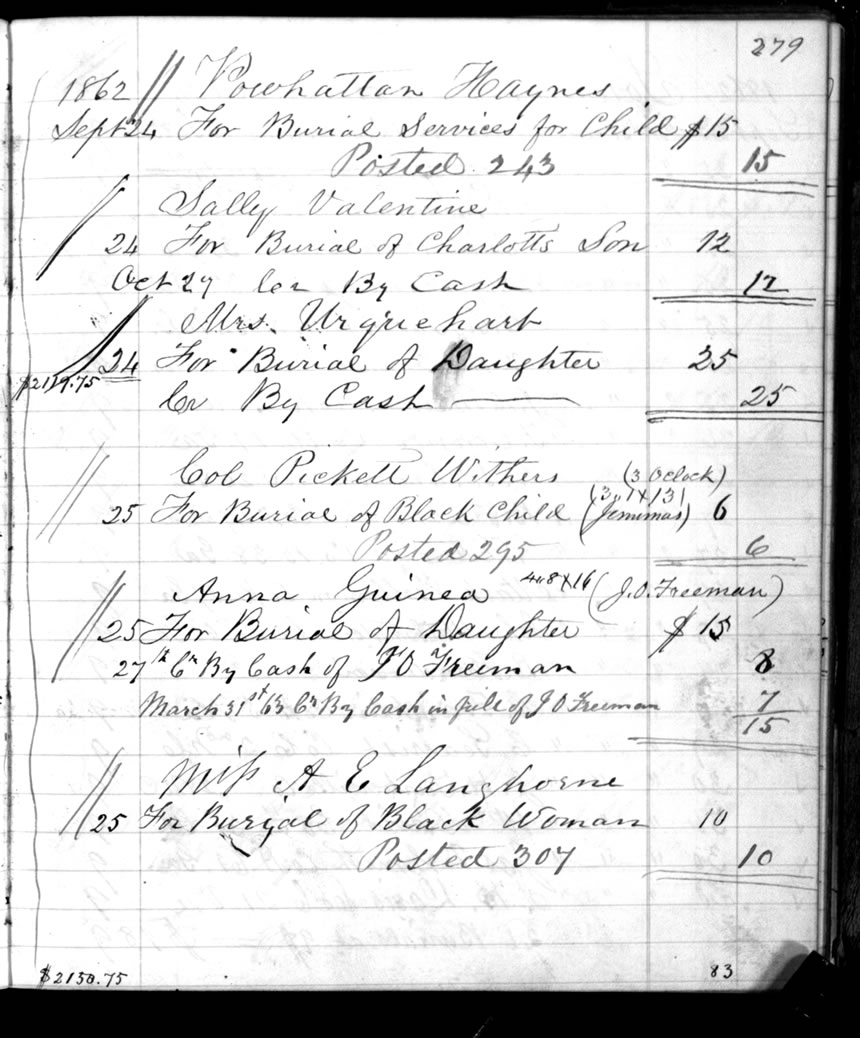 279
1862 // Powhattan Haynes
Sept 24 For Burial Services for Child $15
Posted 243 15
Sally Valentine
24 For Burial of Charlotts Son 12
Oct 27 Cr By Cash 12
Mrs. Urquehart
24 For Burial of Daughter 25
Cr By Cash 25
Col Pickett Withers (3 Oclock)
25 For Burial of Black Child (Jemimas) 6
Posted 295 6
Anna Guinea 4.8x16 (J.O. Freeman)
25 For Burial of Daughter $15
27th Cr By Cash of J O Freeman 8
March 31st 63 Cr By Cash in full of J O Freeman 7
15
Miss A E Langhorne
25 For Burial of Black Woman 10
Posted 307 10
$2150.75 83